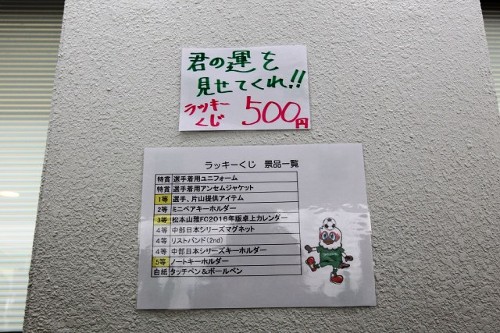 君の運を
見せてくれ!!
ラッキー
くじ 500円
ラッキーくじ 景品一覧
特賞 選手着用ユニフォーム
特賞 選手着用アンセムジャケット
1等 選手、片山提供アイテム
2等 ミニベアキーホルダー
3等 松本山雅FC2016年版卓上カレンダー
4等 中部日本シリーズマグネット
4等 リストバンド(2nd)
4等 中部日本シリーズキーホルダー
5等 ノートキーホルダー
白紙 タッチペン&ボールペン